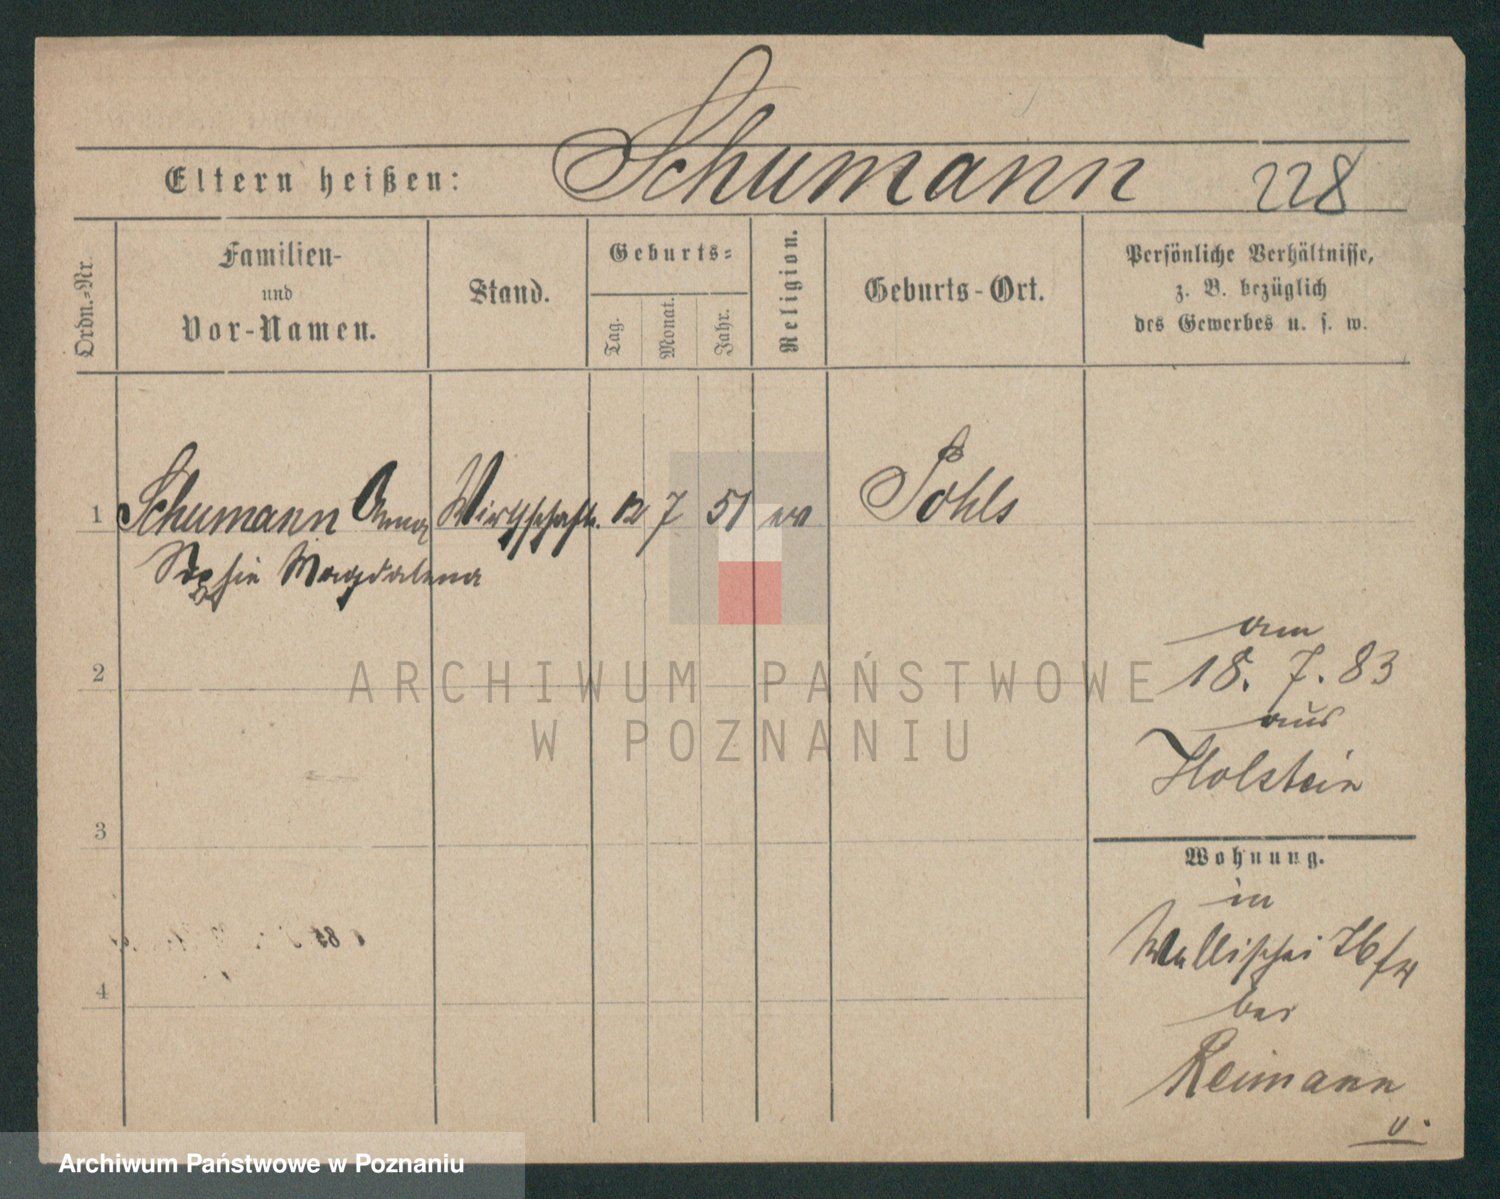 Eltern heißen: Schumann 228
Ordn.-Nr.
Familien-
und
Vor-Namen.
Stand.
Geburts-
Tag.
Monat.
Jahr.
Religion.
Geburts-Ort.
Persönliche Verhältnisse,
z. B. bezüglich
des Gewerbes u. s. w.
1 Schumann Anna Wirthschaft. 12 7 51 ev Pohls
Sophie Magdalena
am
2 18. 7. 83
aus
Holstein
ARCHIWUM PAŃSTWOWE
W POZNANIU
3
Wohnung.
in
Wallischei
4
bei
Reimann
Archiwum Państwowe w Poznaniu